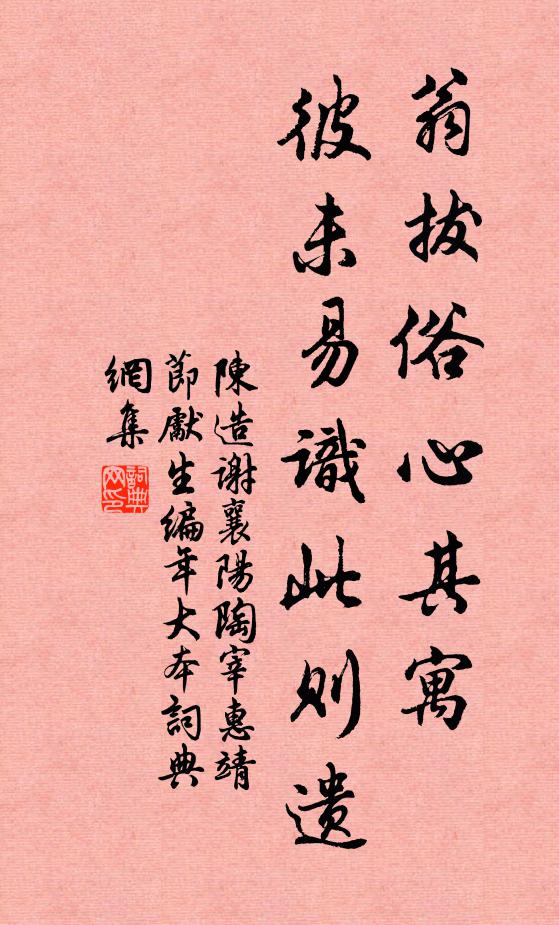 翁拔俗心其寓
彼未易識此則遺
陳造謝襄陽陶宰惠靖
節獻生編年大本詞典
網集
詞典網